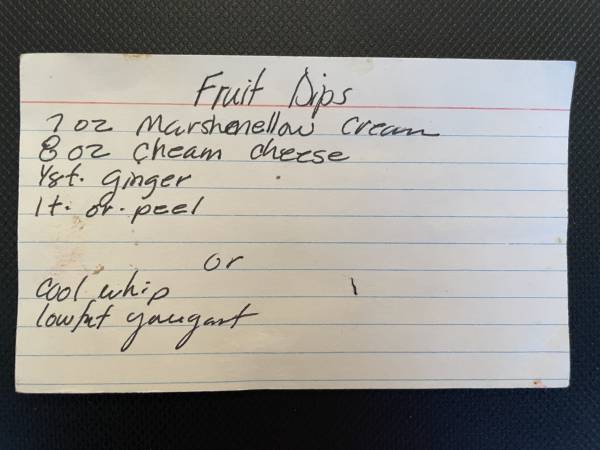 Fruit Dips
7 oz Marshmellow Cream
8 oz Cheam cheese
1/8t. ginger
1t. or. peel
or
Cool whip
lowfat yougart